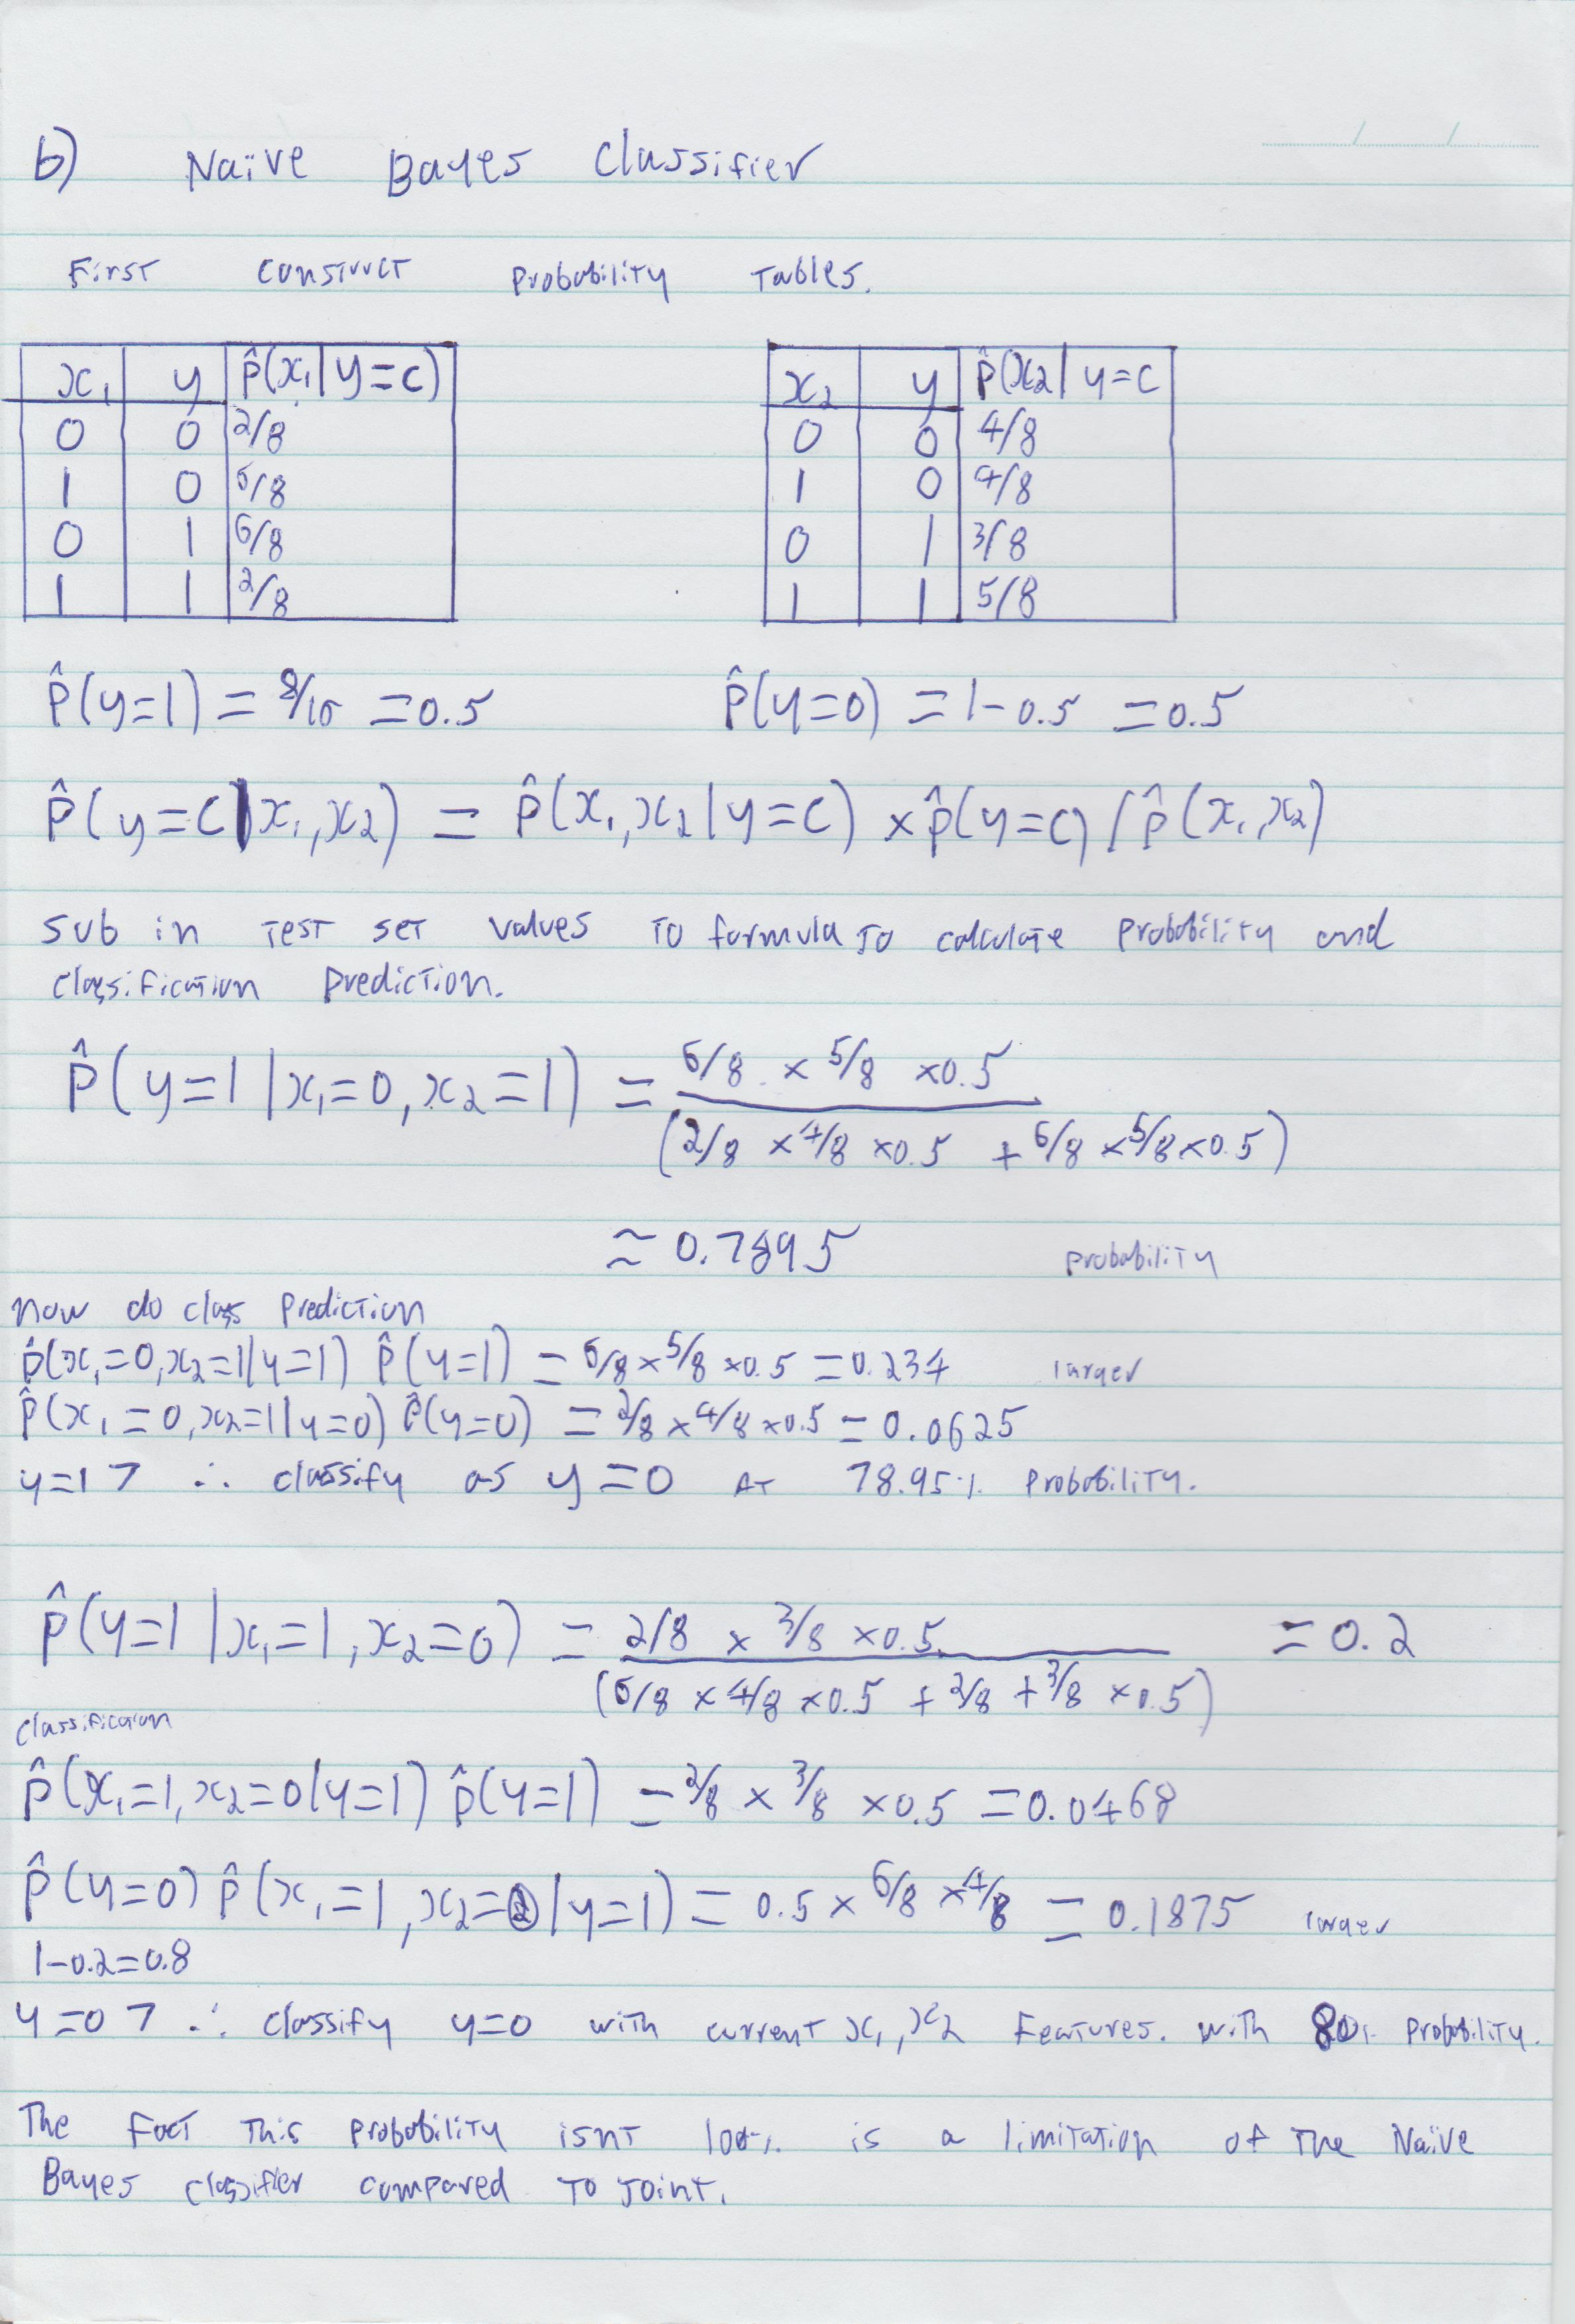 b) Naïve Bayes Classifier
First construct probability tables.
x₁ y p̂(x₁|y=c)
0 0 2/8
1 0 6/8
0 1 6/8
1 1 2/8
x₂ y p̂(x₂|y=c
0 0 4/8
1 0 4/8
0 1 3/8
1 1 5/8
p̂(y=1) = 8/16 = 0.5 p̂(y=0) = 1-0.5 = 0.5
p̂(y=c|x₁,x₂) = p̂(x₁,x₂|y=c) × p̂(y=c) / p̂(x₁,x₂)
sub in test set values to formula to calculate probability and
classification prediction.
p̂(y=1|x₁=0,x₂=1) = 6/8 × 5/8 × 0.5
(2/8 × 4/8 × 0.5 + 6/8 × 5/8 × 0.5)
≈ 0.7895 probability
now do class prediction
p̂(x₁=0,x₂=1|y=1) p̂(y=1) = 6/8 × 5/8 × 0.5 = 0.234 larger
p̂(x₁=0,x₂=1|y=0) p̂(y=0) = 2/8 × 4/8 × 0.5 = 0.0625
y=1 > ∴ classify as y=0 at 78.95% probability.
p̂(y=1|x₁=1,x₂=0) = 2/8 × 3/8 × 0.5 = 0.2
(6/8 × 4/8 × 0.5 + 2/8 + 3/8 × 0.5)
classification
p̂(x₁=1,x₂=0|y=1) p̂(y=1) = 2/8 × 3/8 × 0.5 = 0.0468
p̂(y=0) p̂(x₁=1,x₂=|y=1) = 0.5 × 6/8 × 4/8 = 0.1875 larger
1-0.2=0.8
y=0 > ∴ classify y=0 with current x₁,x₂ features. with 80% probability.
The fact this probability isnt 100% is a limitation of the Naïve
Bayes classifier compared to joint.